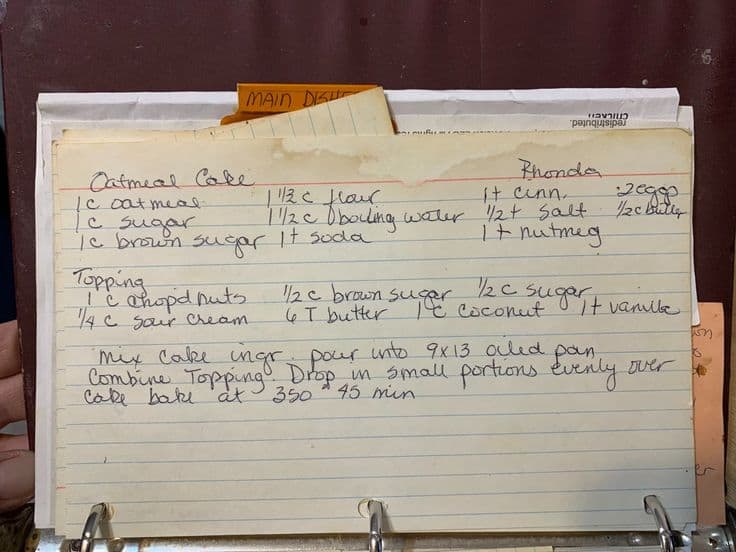 MAIN DISHE
chicken
redistributed.
Oatmeal Cake Rhonda
1c oatmeal 1 1/3 c flour 1t cinn. 2 eggs
1c sugar 1 1/2 c boiling water 1/2 t salt 1/2 c butter
1c brown sugar 1t soda 1t nutmeg
Topping
1 c chopd nuts 1/2 c brown sugar 1/2 c sugar
1/4 c sour cream 6 T butter 1 c coconut 1t vanilla
Mix cake ingr. pour into 9x13 oiled pan
Combine Topping. Drop in small portions evenly over
cake bake at 350° 45 min